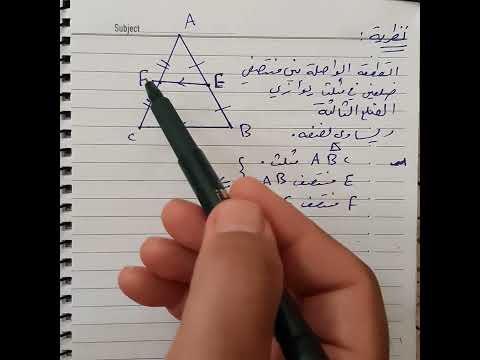 Subject
نظرية :
القطعة الواصلة بين منتصفي
ضلعين في مثلث يوازي
الضلع الثالثة
ويساوي لنصفه.
A
F
E
C
B
ABC مثلث.
E منتصف AB
F منتصف